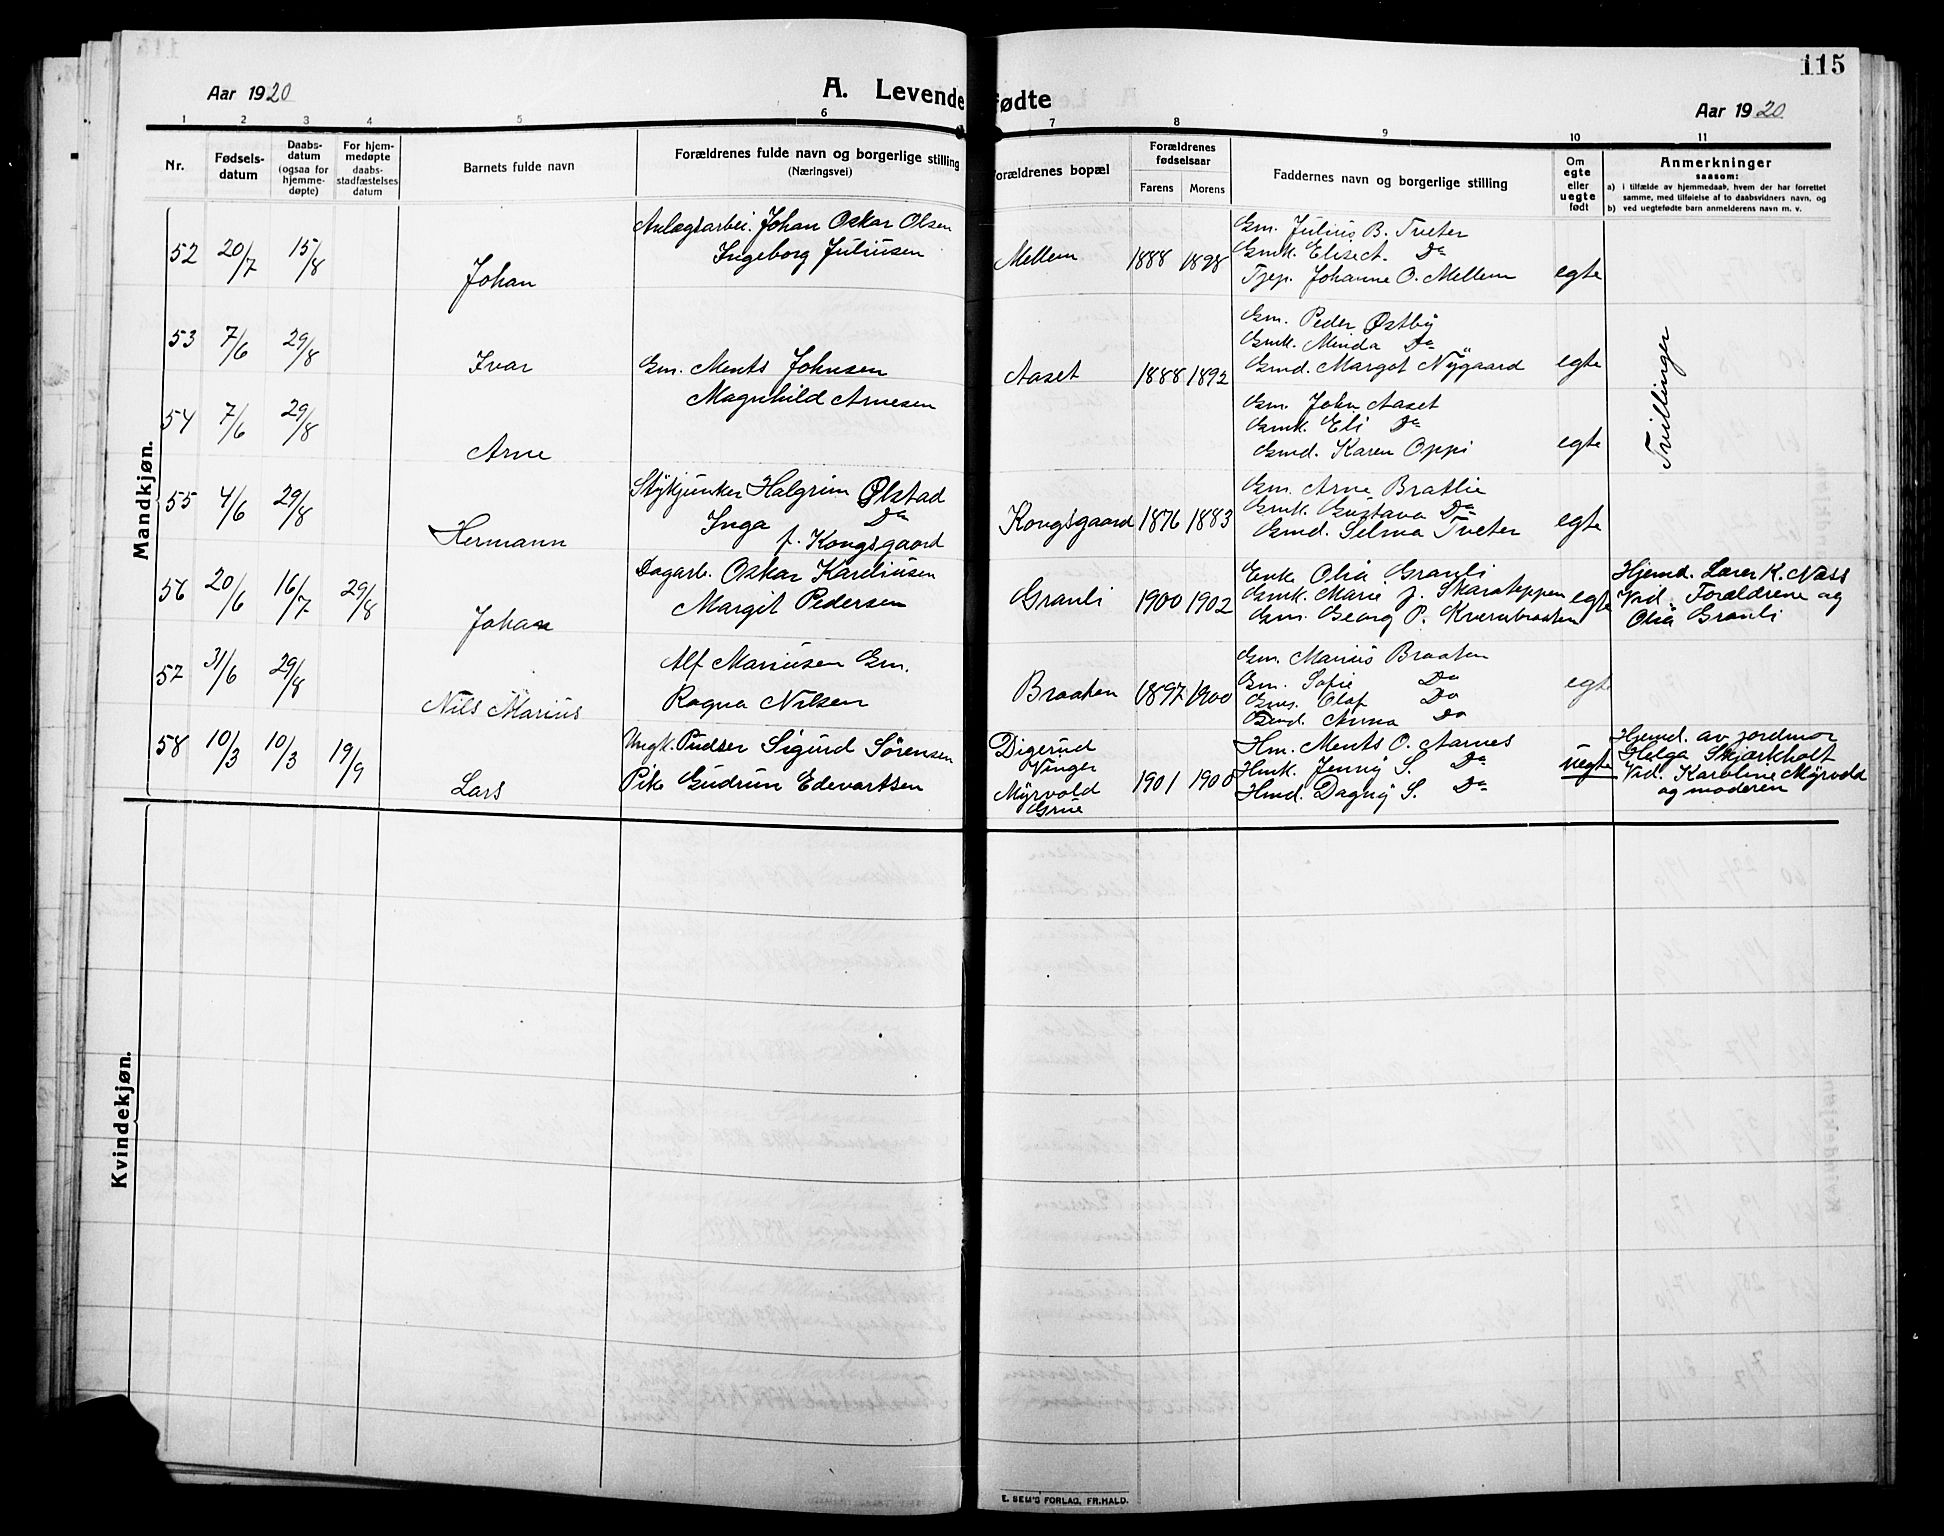 115
Aar 1920
A. Levende fødte
Aar 1920
1 2 3 4 5 6 7 8 9 10 11
Nr.
Fødsels-
datum
Daabs-
datum
(ogsaa for
hjemme-
døpte)
For hjem-
medøpte
daabs-
stadfæstelses
datum
Barnets fulde navn
Forældrenes fulde navn og borgerlige stilling
(Næringsvei)
Forældrenes bopæl
Forældrenes
fødselsaar
Farens Morens
Faddernes navn og borgerlige stilling
Om
egte
eller
uegte
født
Anmerkninger
saasom:
a) i tilfælde av hjemmedaab, hvem der har forrettet
samme, med tilføielse af to daabsvidners navn, og
b) ved uegtefødte barn anmelderens navn m. v.
Mandkjøn.
52 20/7 15/8 Johan
Anlægsarbei. Johan Oskar Olsen
Ingeborg Juliussen
Mellem 1888 1898
Gm. Julius B. Tveter
Gmk. Elise A. Do
Tjep. Johanne O. Mellem
egte
53 7/6 29/8 Ivar
Gm. Ments Johnsen
Magnhild Arnesen
Aaset 1888 1892
Gm. Peder Østby
Gmk. Minda Do
Gmd. Margot Nygaard
egte
Tvillinger
54 7/6 29/8 Arne
Gm. John Aaset
Gmk. Eli Do
Gmd. Karen Oppi
egte
55 4/6 29/8 Hermann
Stykjunker Halgrim Ølstad
Inga Do
f. Kongsgaard
Kongsgaard 1876 1883
Gm. Arne Bratlie
Gmk. Gustava Do
Gmd. Selma Tveter
egte
56 20/6 16/7 29/8 Johan
Dagarb. Oskar Kareliusen
Margit Pedersen
Granli 1900 1902
Enk. Olia Granli
Gmk. Marie J. Skarateppen
Gm. Georg P. Kvernbraaten
egte
Hjemd. Lærer K. Næss
Vid. Forældrene og
Olia Granli
57 31/6 29/8 Nils Marius
Alf Mariusen Gm.
Ragna Nilsen
Braaten 1897 1900
Gm. Marius Braaten
Gm. Sofie Do
Gms. Olaf Do
Gmd. Anna Do
egte
58 10/3 10/3 19/9 Lars
Ungk. Pudser Sigurd Sørensen
Pike Gudrun Edevartsen
Digerud
Vinger
Myrvold
Grue
1901 1900
Hm. Ments O. Aarnes
Hmk. Jenny S. Do
Hmd. Dagny S. Do
uegte
Hjemd. av jordmor
Helga Skjærkholt
Vid. Karoline Myrvold
og moderen
Kvindekjøn.
E. SEM'S FORLAG, FR.HALD.